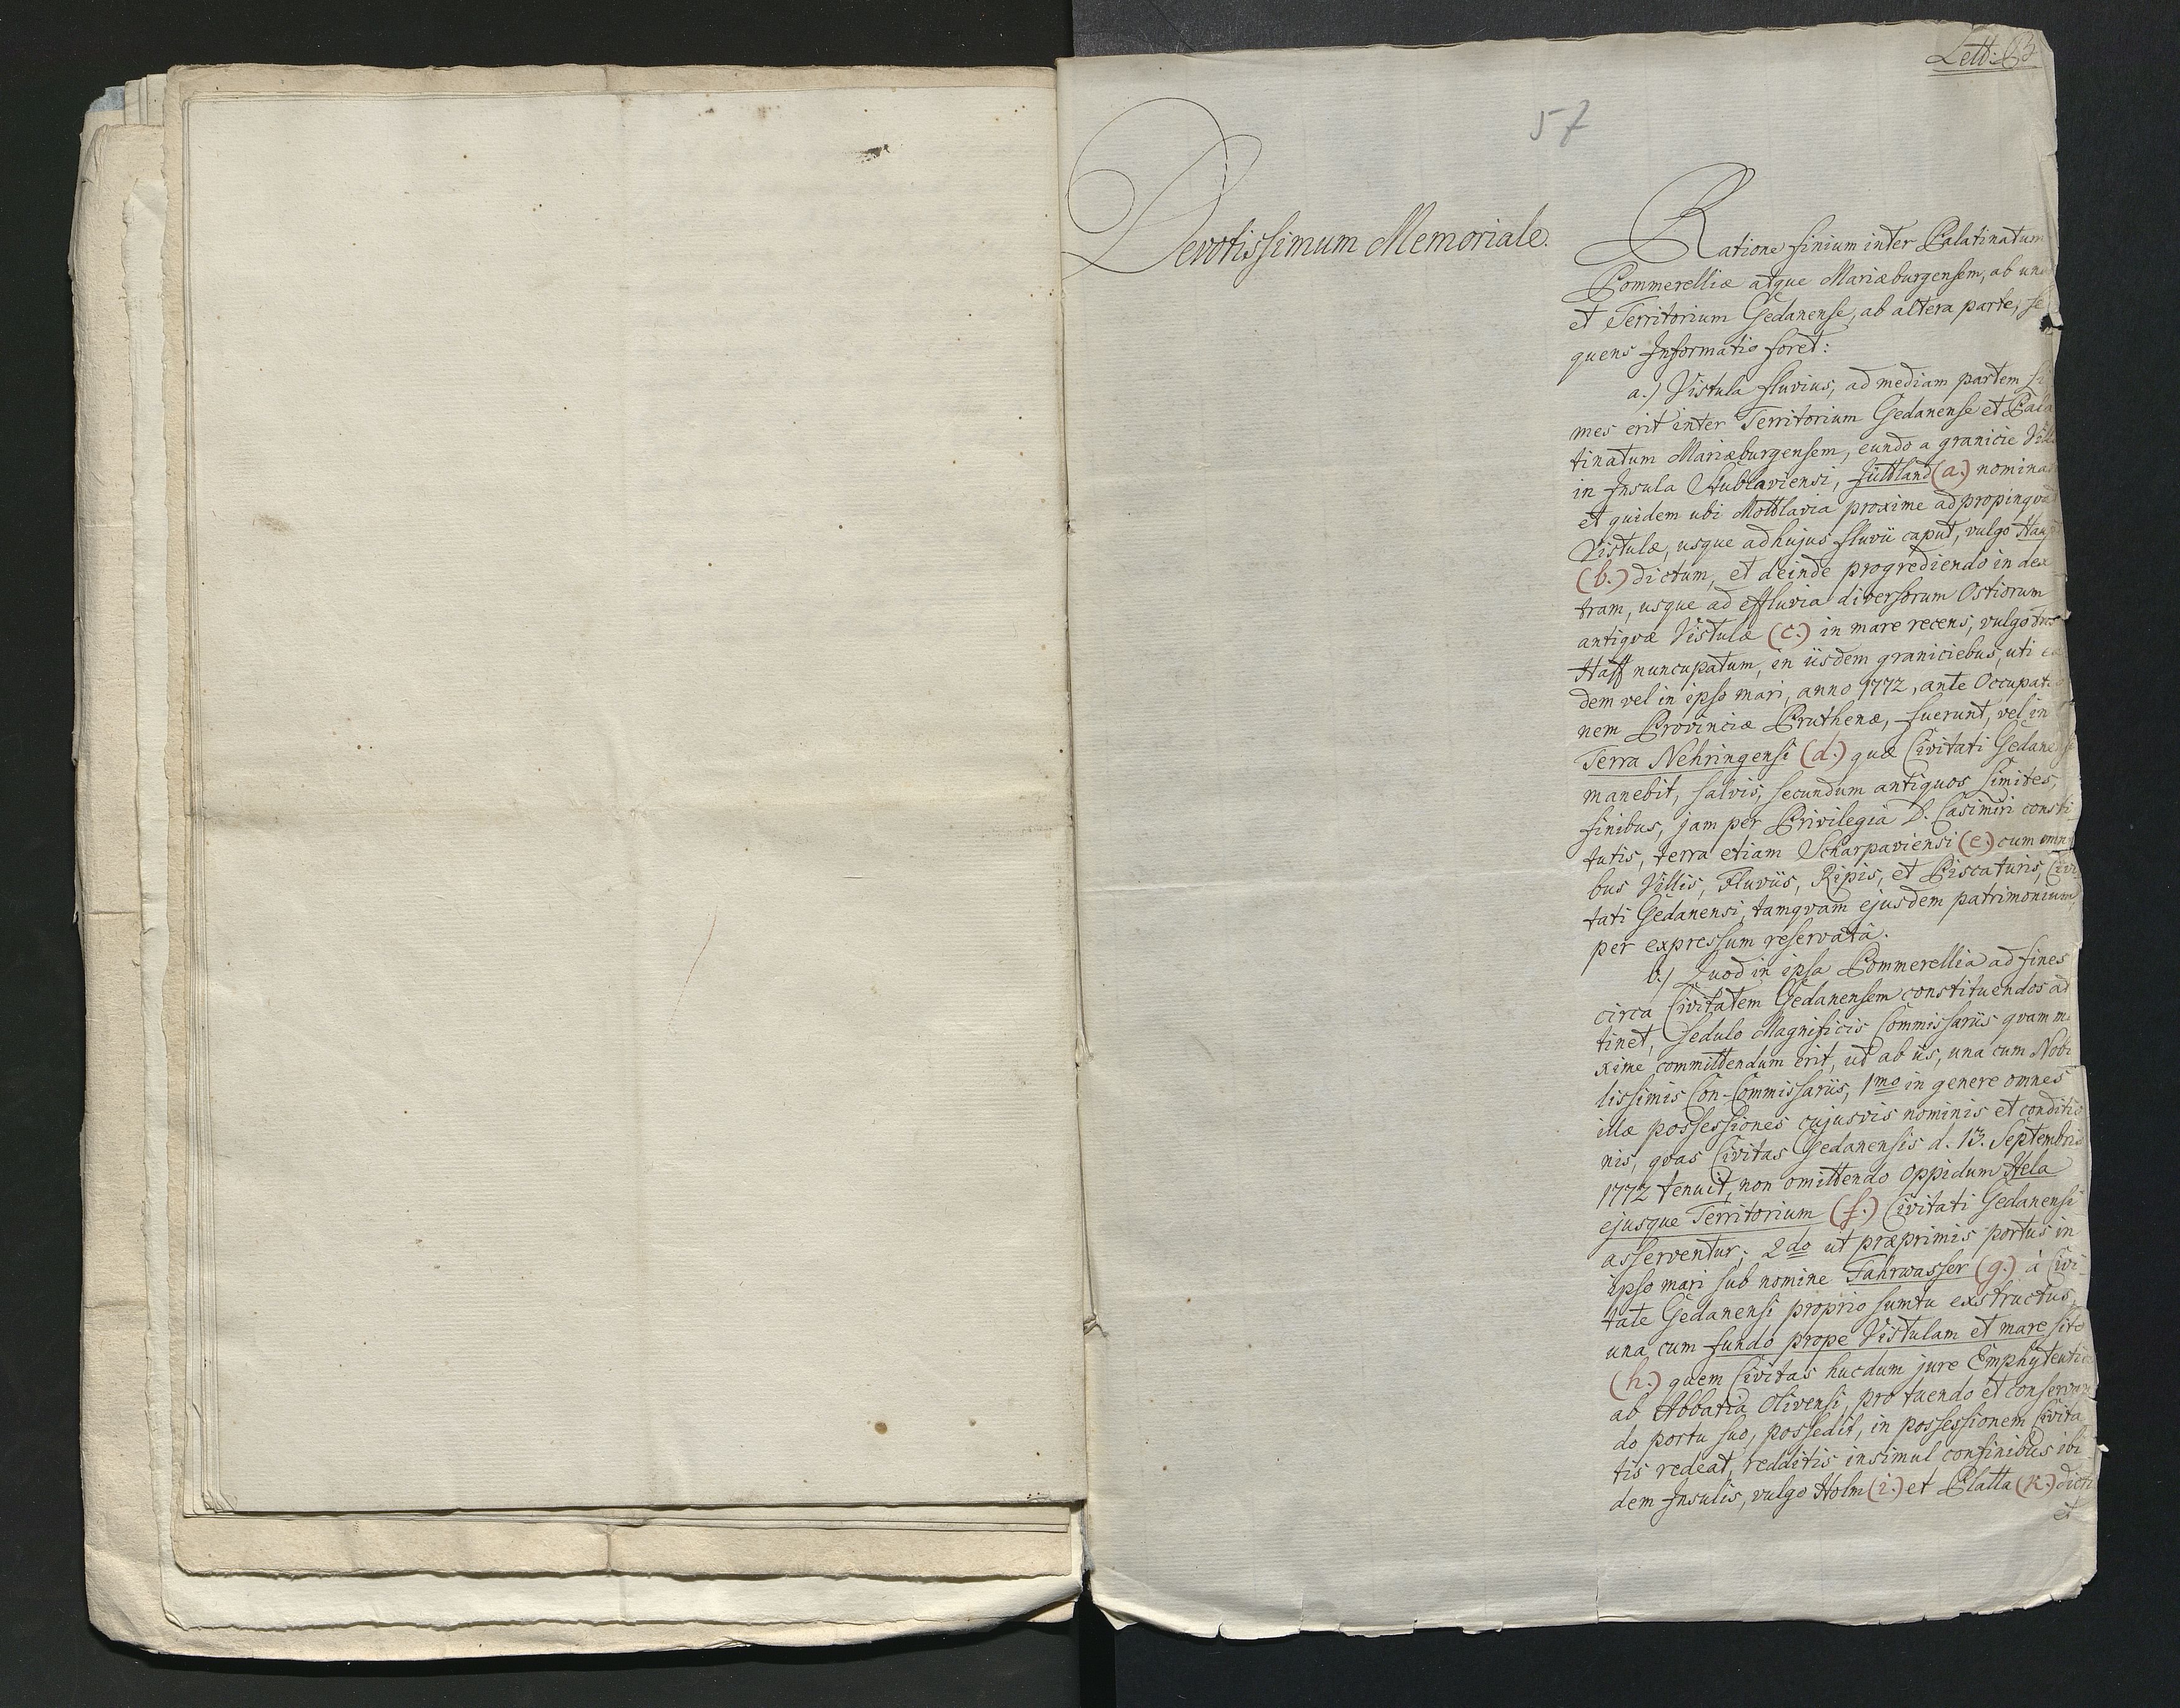 Litt: B
57
Devotissimum Memoriale.
Ratione finium inter Palatinatum
Pommerelliæ atque Mariæburgensem, ab una
et Territorium Gedanense, ab altera parte, se
quens Informatio foret:
a.) Vistula fluvius, ad mediam partem Li
mes erit inter Territorium Gedanense et Pala
tinatum Mariæburgensem, eundo a granicie
in Insula Stublaviensi, Güttland (a.) nomina
et quidem ubi Mottlavia proxime adpropinqvat
Vistulæ, usque ad hujus fluvii caput, vulgo Haupt
(b.) dictum, et deinde progrediendo in dex
tram, usque ad effluvia diversorum Ostiorum
antiqvæ Vistulæ (c.) in mare recens, vulgo
Haff nuncupatum, in iisdem graniciebus, uti ea
dem vel in ipso mari, anno 1772, ante Occupatio
nem Provinciæ Pruthenæ, fuerunt, vel in
Terra Nehringensi (d.) quæ Civitati Gedanensi
manebit, salvis, secundum antiquos Limites,
finibus, jam per Privilegia D. Casimiri consti
tutis, terra etiam Scharpaviensi (e.) cum omni
bus Villis, Fluviis, Ripis, et Piscaturis, Civi
tati Gedanensi, tamqvam ejusdem patrimonium,
per expressum reservata.
b.) Quod in ipsa Pommerellia ad fines
circa Civitatem Gedanensem constituendos at
tinet, sedulo Magnificis Commissariis qvam ma
xime committendum erit, ut ab iis, una cum Nobi
lissimis Con-Commissariis, 1mo in genere omnes
illæ possessiones cujusvis nominis et conditio
nis, qvas Civitas Gedanensis d. 13. Septembris
1772 tenuit, non omittendo Oppidum Hela
ejusque Territorium (f.) Civitati Gedanensi
asserventur; 2do ut præprimis portus in
ipso mari sub nomine Fahrwasser (g.) à Civi-
tate Gedanensi proprio sumtu exstructus,
una cum fundo prope Vistulam et mare sito
(h.) quem Civitas hucdum jure Emphyteutico
ab Abbatia Olivensi, pro tuendo et conservan
do portu suo, possedit, in possessionem Civita
tis redeat, redditis insimul confinibus ibi
dem Insulis, vulgo Holm (i.) et Platta (k.) dictis
et